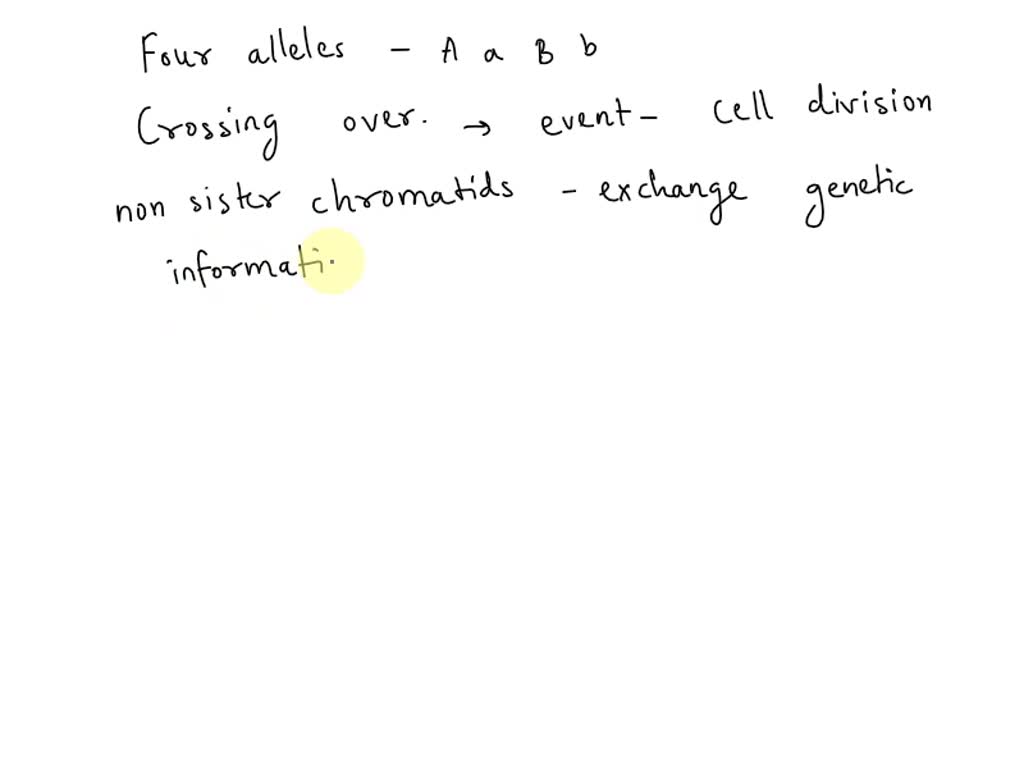 Four alleles - A a B b
Crossing over. → event - cell division
non sister chromatids - exchange genetic
informati